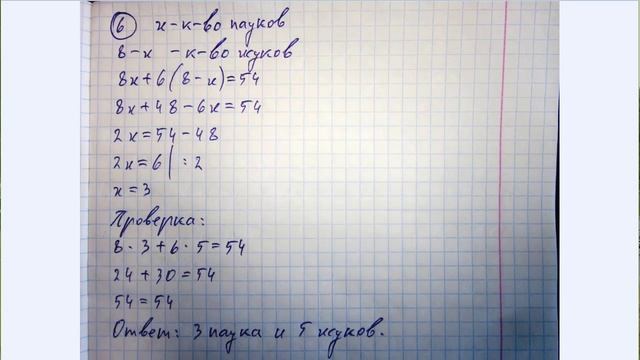 6 х-к-во пауков
8-х - к-во жуков
8х+6(8-х)=54
8х+48-6х=54
2х=54-48
2х=6| :2
х=3
Проверка:
8·3+6·5=54
24+30=54
54=54
Ответ: 3 паука и 5 жуков.